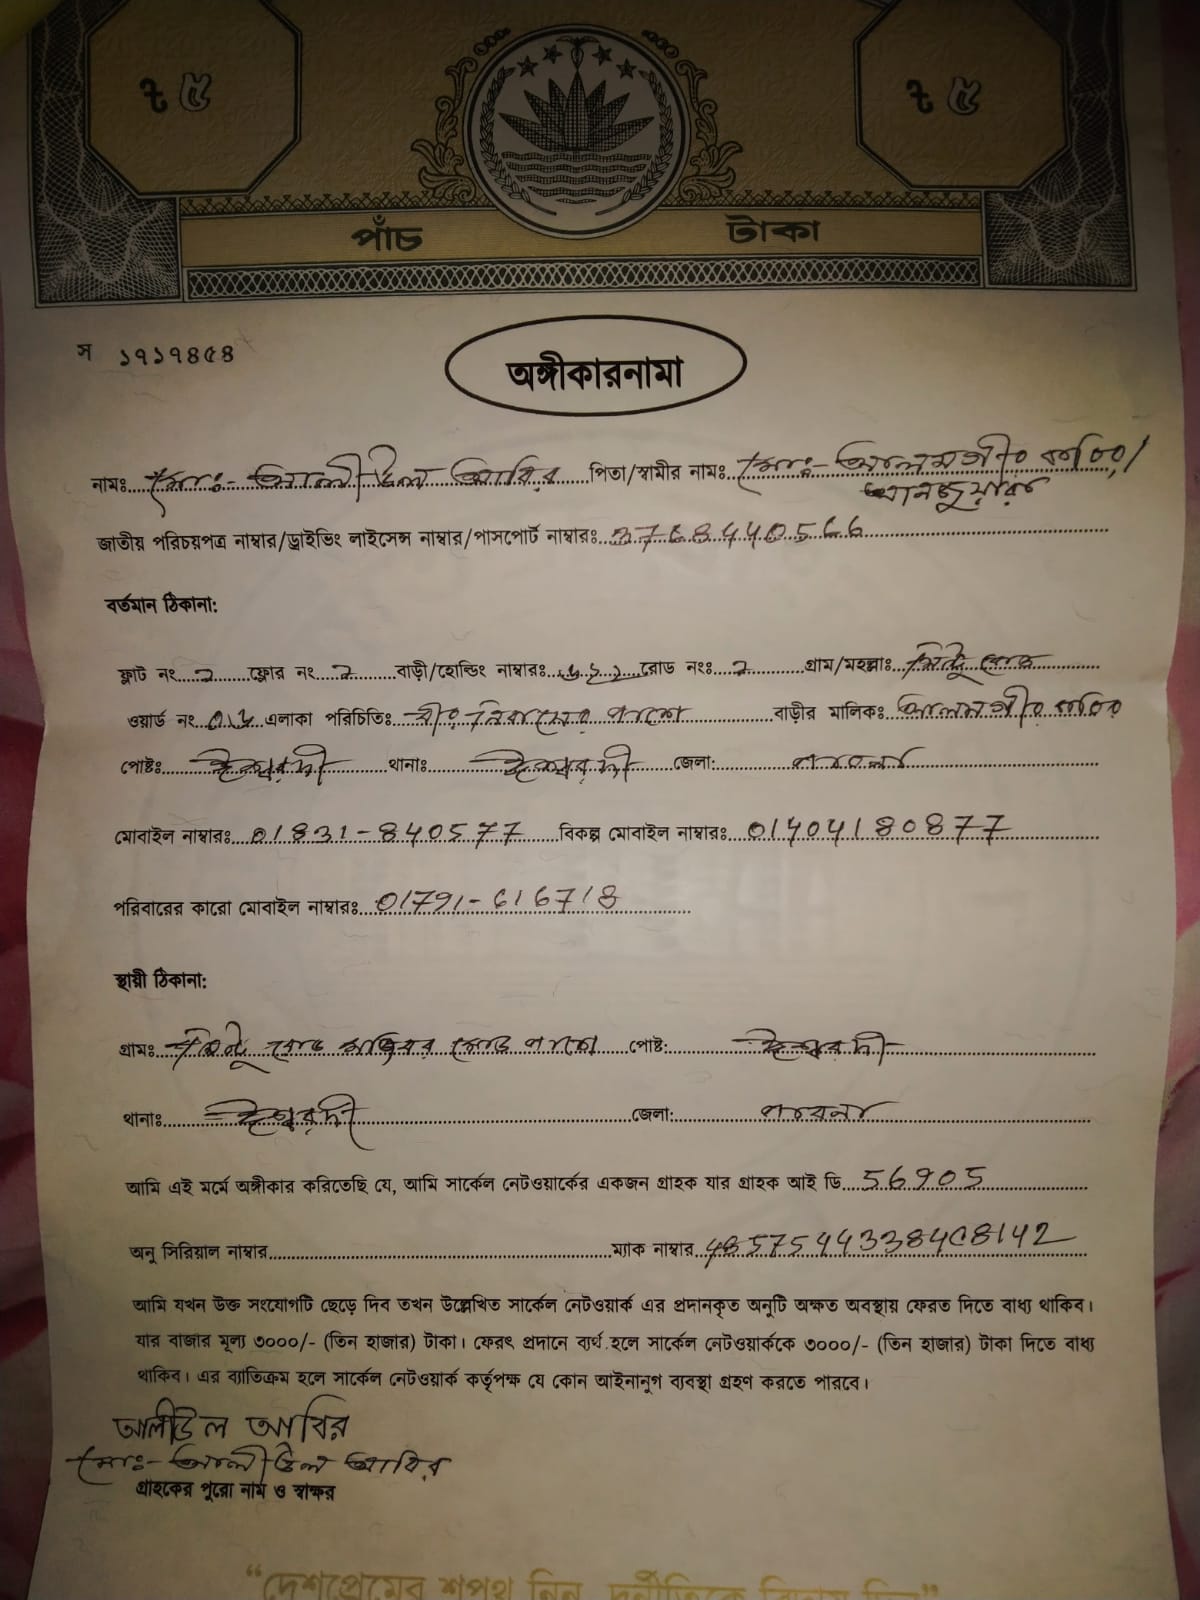 ৳ ৫ ৳ ৫
পাঁচ টাকা
স ১৭১৭৪৫৪
অঙ্গীকারনামা
নামঃ মোঃ- আলী উল আবির পিতা/স্বামীর নামঃ মোঃ- আলমগীর কবির/
আনজুয়ারা
জাতীয় পরিচয়পত্র নাম্বার/ড্রাইভিং লাইসেন্স নাম্বার/পাসপোর্ট নাম্বারঃ 3768440566
বর্তমান ঠিকানা:
ফ্লাট নং ২ ফ্লোর নং ২ বাড়ী/হোল্ডিং নাম্বারঃ রোড নংঃ ২ গ্রাম/মহল্লাঃ পিন্টু রোড
ওয়ার্ড নং এলাকা পরিচিতিঃ নিবাসের পাশে বাড়ীর মালিকঃ আলমগীর কবির
পোষ্টঃ ঈশ্বরদী থানাঃ ঈশ্বরদী জেলা: পাবনা
মোবাইল নাম্বারঃ 01831-840577 বিকল্প মোবাইল নাম্বারঃ 01404180877
পরিবারের কারো মোবাইল নাম্বারঃ 01791-616718
স্থায়ী ঠিকানা:
গ্রামঃ পিন্টু রোড মোড় পাশে পোষ্ট: ঈশ্বরদী
থানাঃ ঈশ্বরদী জেলা: পাবনা
আমি এই মর্মে অঙ্গীকার করিতেছি যে, আমি সার্কেল নেটওয়ার্কের একজন গ্রাহক যার গ্রাহক আই ডি 56905
অনু সিরিয়াল নাম্বার ম্যাক নাম্বার
আমি যখন উক্ত সংযোগটি ছেড়ে দিব তখন উল্লেখিত সার্কেল নেটওয়ার্ক এর প্রদানকৃত অনুটি অক্ষত অবস্থায় ফেরত দিতে বাধ্য থাকিব।
যার বাজার মূল্য ৩০০০/- (তিন হাজার) টাকা। ফেরৎ প্রদানে ব্যর্থ হলে সার্কেল নেটওয়ার্ককে ৩০০০/- (তিন হাজার) টাকা দিতে বাধ্য
থাকিব। এর ব্যাতিক্রম হলে সার্কেল নেটওয়ার্ক কর্তৃপক্ষ যে কোন আইনানুগ ব্যবস্থা গ্রহণ করতে পারবে।
আলীউল আবির
মোঃ- আলী উল আবির
গ্রাহকের পুরো নাম ও স্বাক্ষর
“দেশপ্রেমের শপথ নিন, দুর্নীতিকে বিদায় দিন”